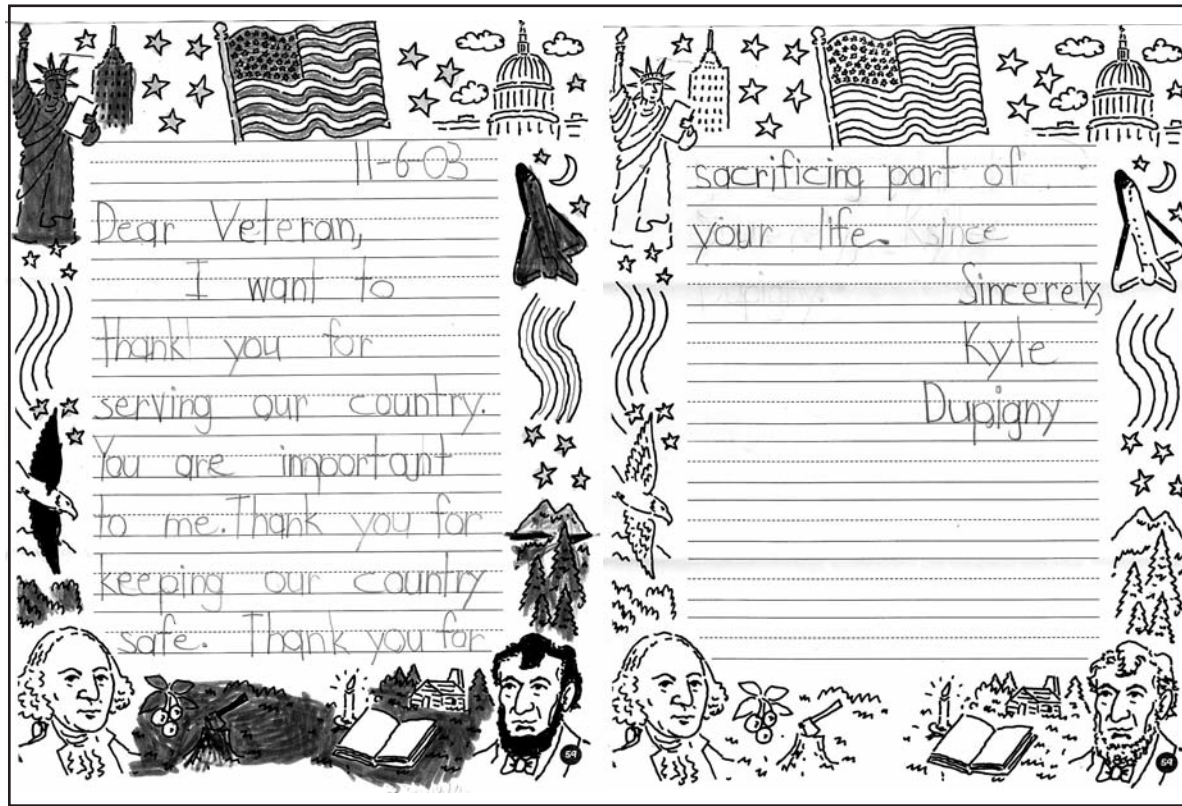 11-6-03
Dear Veteran,
I want to
thank you for
serving our country.
You are important
to me. Thank you for
keeping our country
safe. Thank you for
59
sacrificing part of
your life.
Sincerely,
Kyle
Dupigny
59